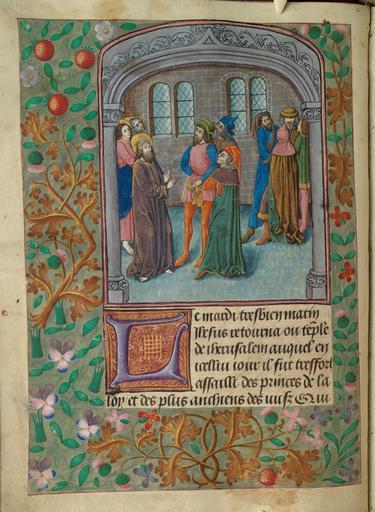 Le mardi tresbien matin
Jhesus retourna ou te͂ple
de iherusalem auquel en
icellui iour il fut tresfort
assailli des princes de la
loy et des plus anchiens des iuifz Qui